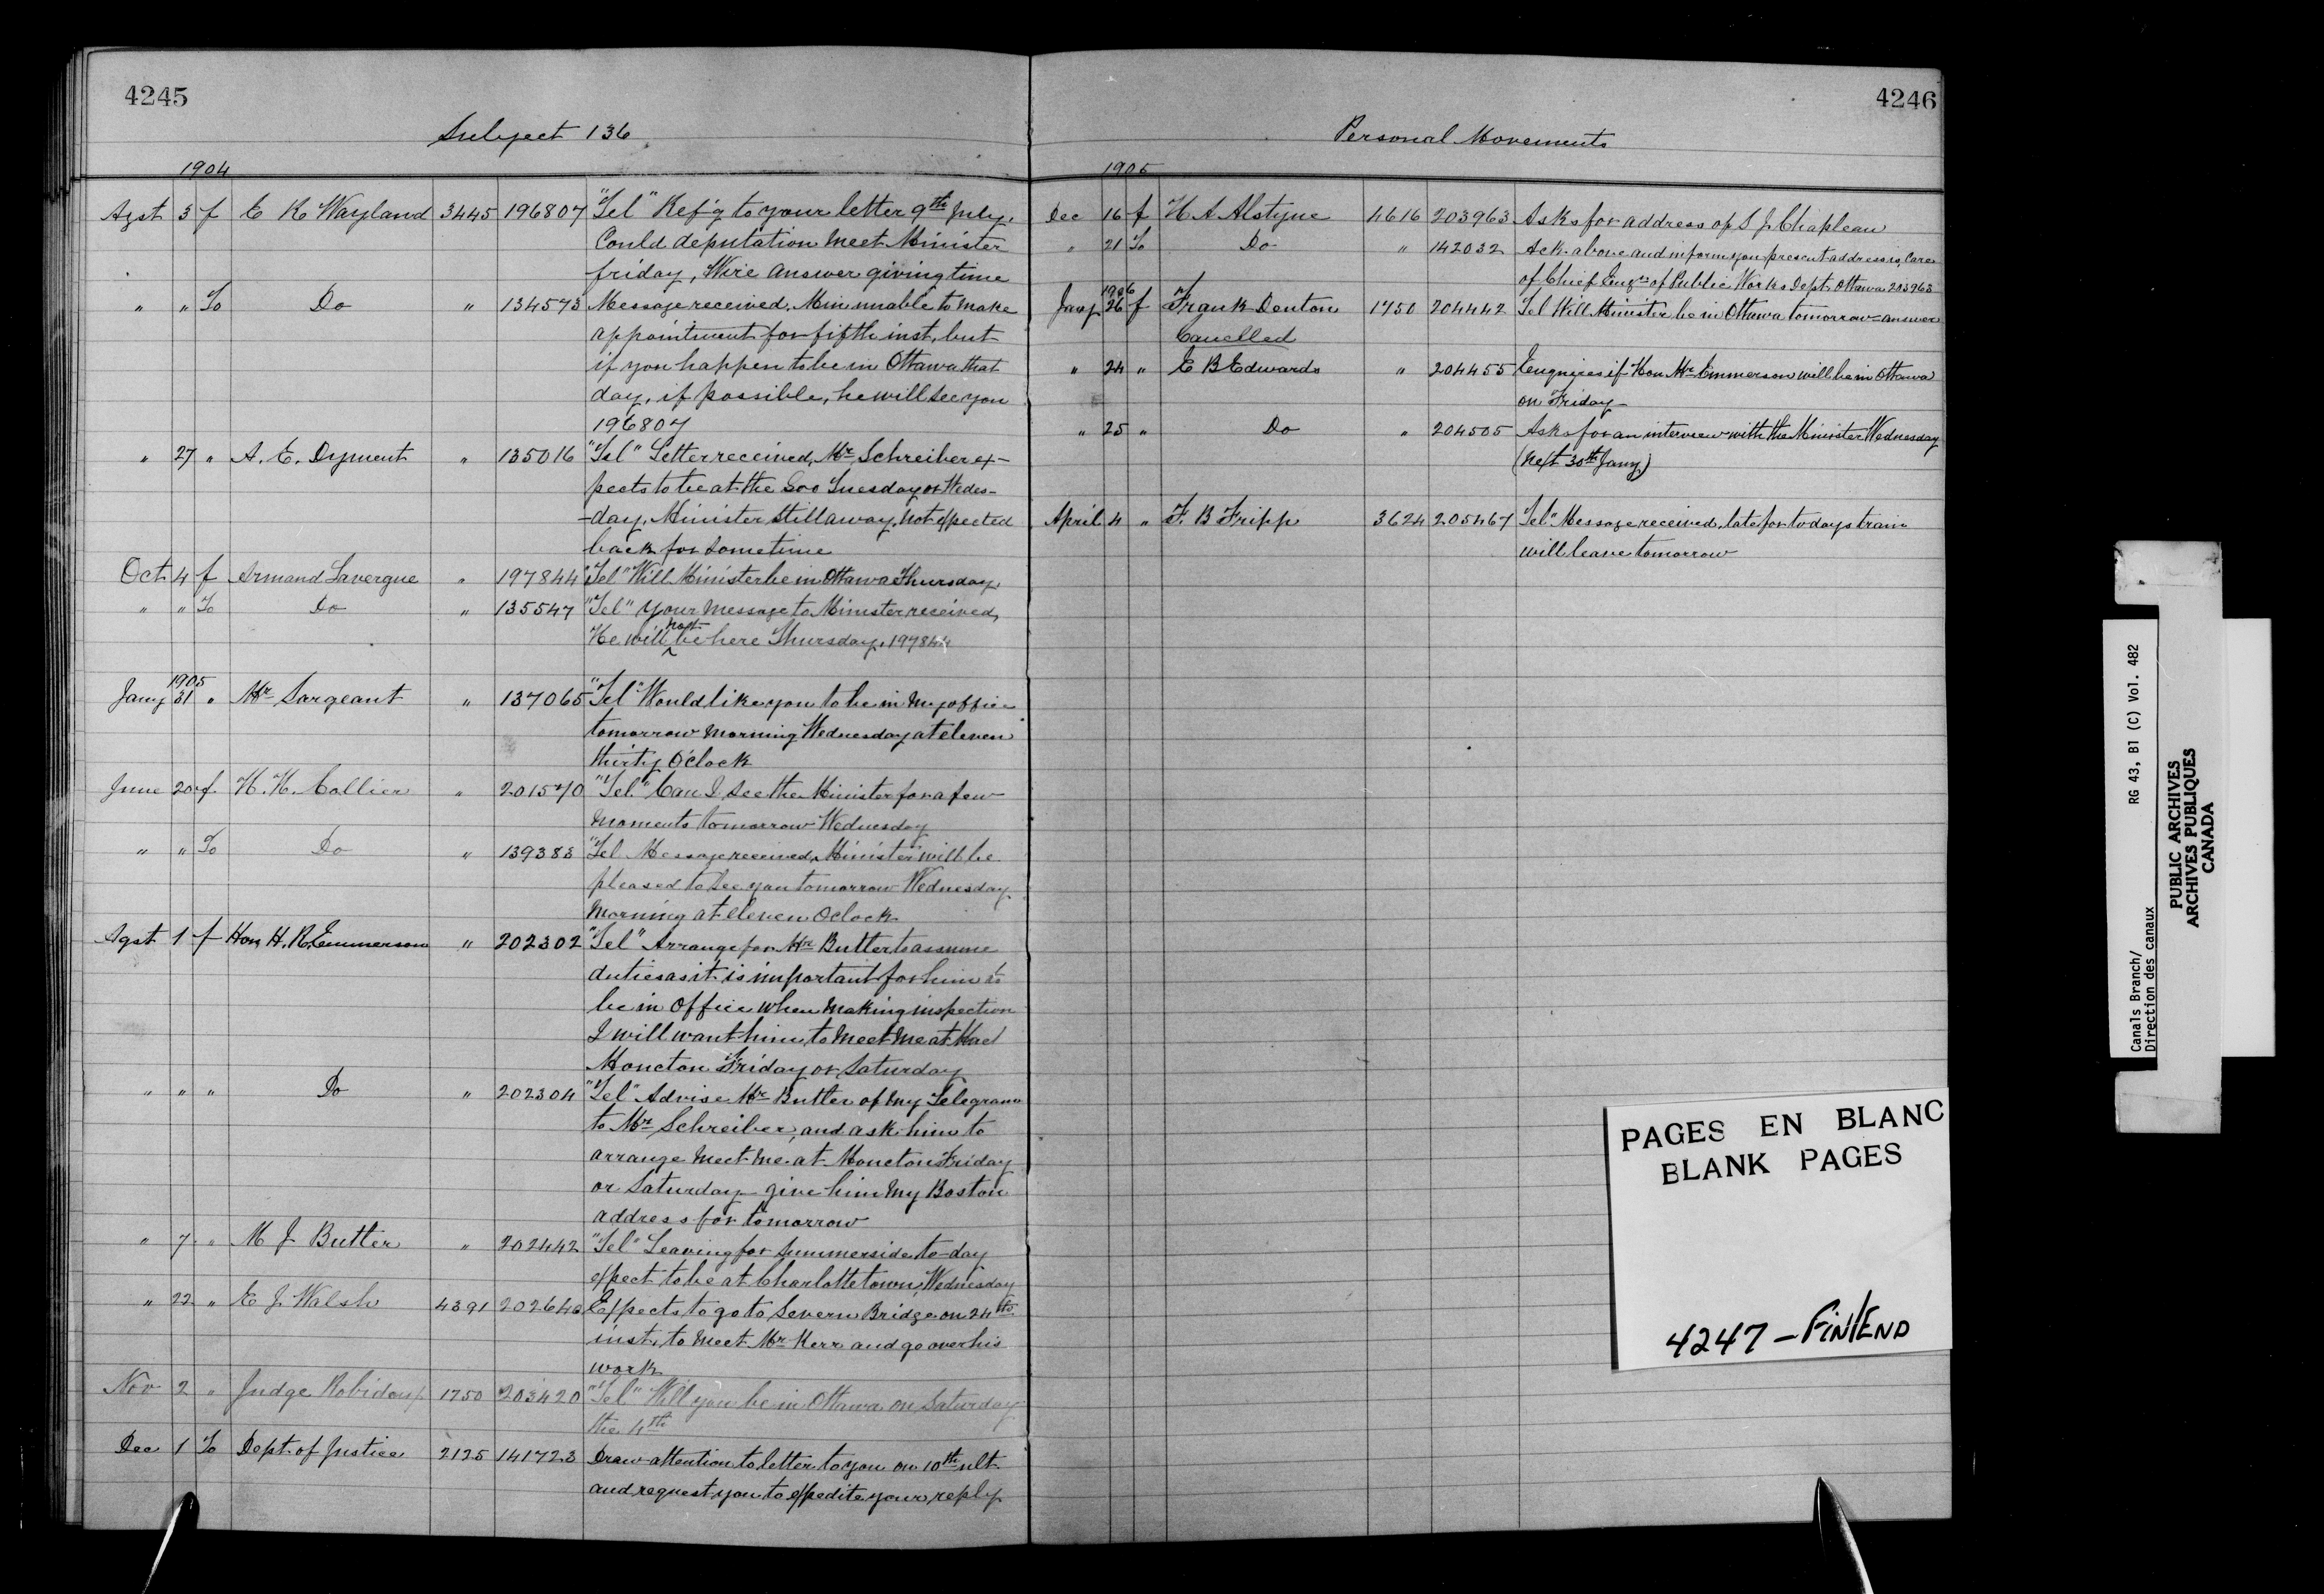 4245
Subject 136
1904
Agst 3 f E K Wayland 3445 196807 "Tel" Ref'g to your letter 9th July.
Could deputation meet Minister
friday, Wire answer giving time
" " To Do " 134573 Message received, Min unable to make
appointment for fifth inst, but
if you happen to be in Ottawa that
day, if possible, he will see you
196807
" 27 " A. E. Dyment " 135016 "Tel" Letter received, Mr Schreiber ex-
pects to be at the Soo Tuesday or Wedes-
-day, Minister still away, not expected
back for sometime
Oct 4 f Armand Lavergne " 197844 "Tel" Will Minister be in Ottawa Thursday,
" " To Do " 135547 "Tel" Your message to Minister received,
He will not be here Thursday, 197844
1905
Jany 31 " Mr Sargeant " 137065 "Tel" Would like you to be in my office
tomorrow morning Wednesday at eleven
thirty O'clock
June 20 f H. H. Collier " 201570 "Tel" Can I see the Minister for a few
moments tomorrow Wednesday
" " To Do " 139383 "Tel Message received, Minister will be
pleased to see you tomorrow Wednesday
morning at eleven Oclock
Agst 1 f Hon H. R. Emmerson " 202302 "Tel" Arrange for Mr Butler to assume
duties as it is important for him to
be in office when making inspection
I will want him to meet me at
Moncton Friday or Saturday
" " " Do " 202304 "Tel" Advise Mr Butler of my Telegram
to Mr Schreiber, and ask him to
arrange meet me at Moncton Friday
or Saturday give him my Boston
address for tomorrow
" 7 " M J Butler " 202442 "Tel" Leaving for Summerside to-day
expect to be at Charlottetown, Wednesday
" 22 " E J. Walsh 4391 202640 Expects to go to Severn Bridge on 24th
inst, to meet Mr Kerr and go over his
work
Nov 2 " Judge Robidoux 1750 203420 "Tel" Will you be in Ottawa on Saturday
the 4th
Dec 1 To Dept. of Justice 2125 141723 Draw attention to letter to you on 10th ult
and request you to expedite your reply
4246
Personal Movements
1905
Dec 16 f H A Alstyne 4616 203963 Asks for address of S J. Chapleau
" 21 To Do " 142032 Ack. above and inform you present address is, Care
of Chief Engr of Public Works Dept. Ottawa 203963
1906
Jany 26 f Frank Denton 1750 204442 Tel Will Minister be in Ottawa tomorrow = answer
Cancelled
" 24 " E B Edwards " 204455 Enquires if Hon Mr Emmerson will be in Ottawa
on Friday
" 25 " Do " 204505 Asks for an interview with the Minister Wednesday
(next 30th Jany)
April 4 " F. B Fripp 3624 205467 "Tel" Message received, late for todays train
will leave tomorrow
PAGES EN BLANC
BLANK PAGES
4247 - FIN/END
Canals Branch/ RG 43, B1 (C) Vol. 482
Direction des canaux
PUBLIC ARCHIVES
ARCHIVES PUBLIQUES
CANADA